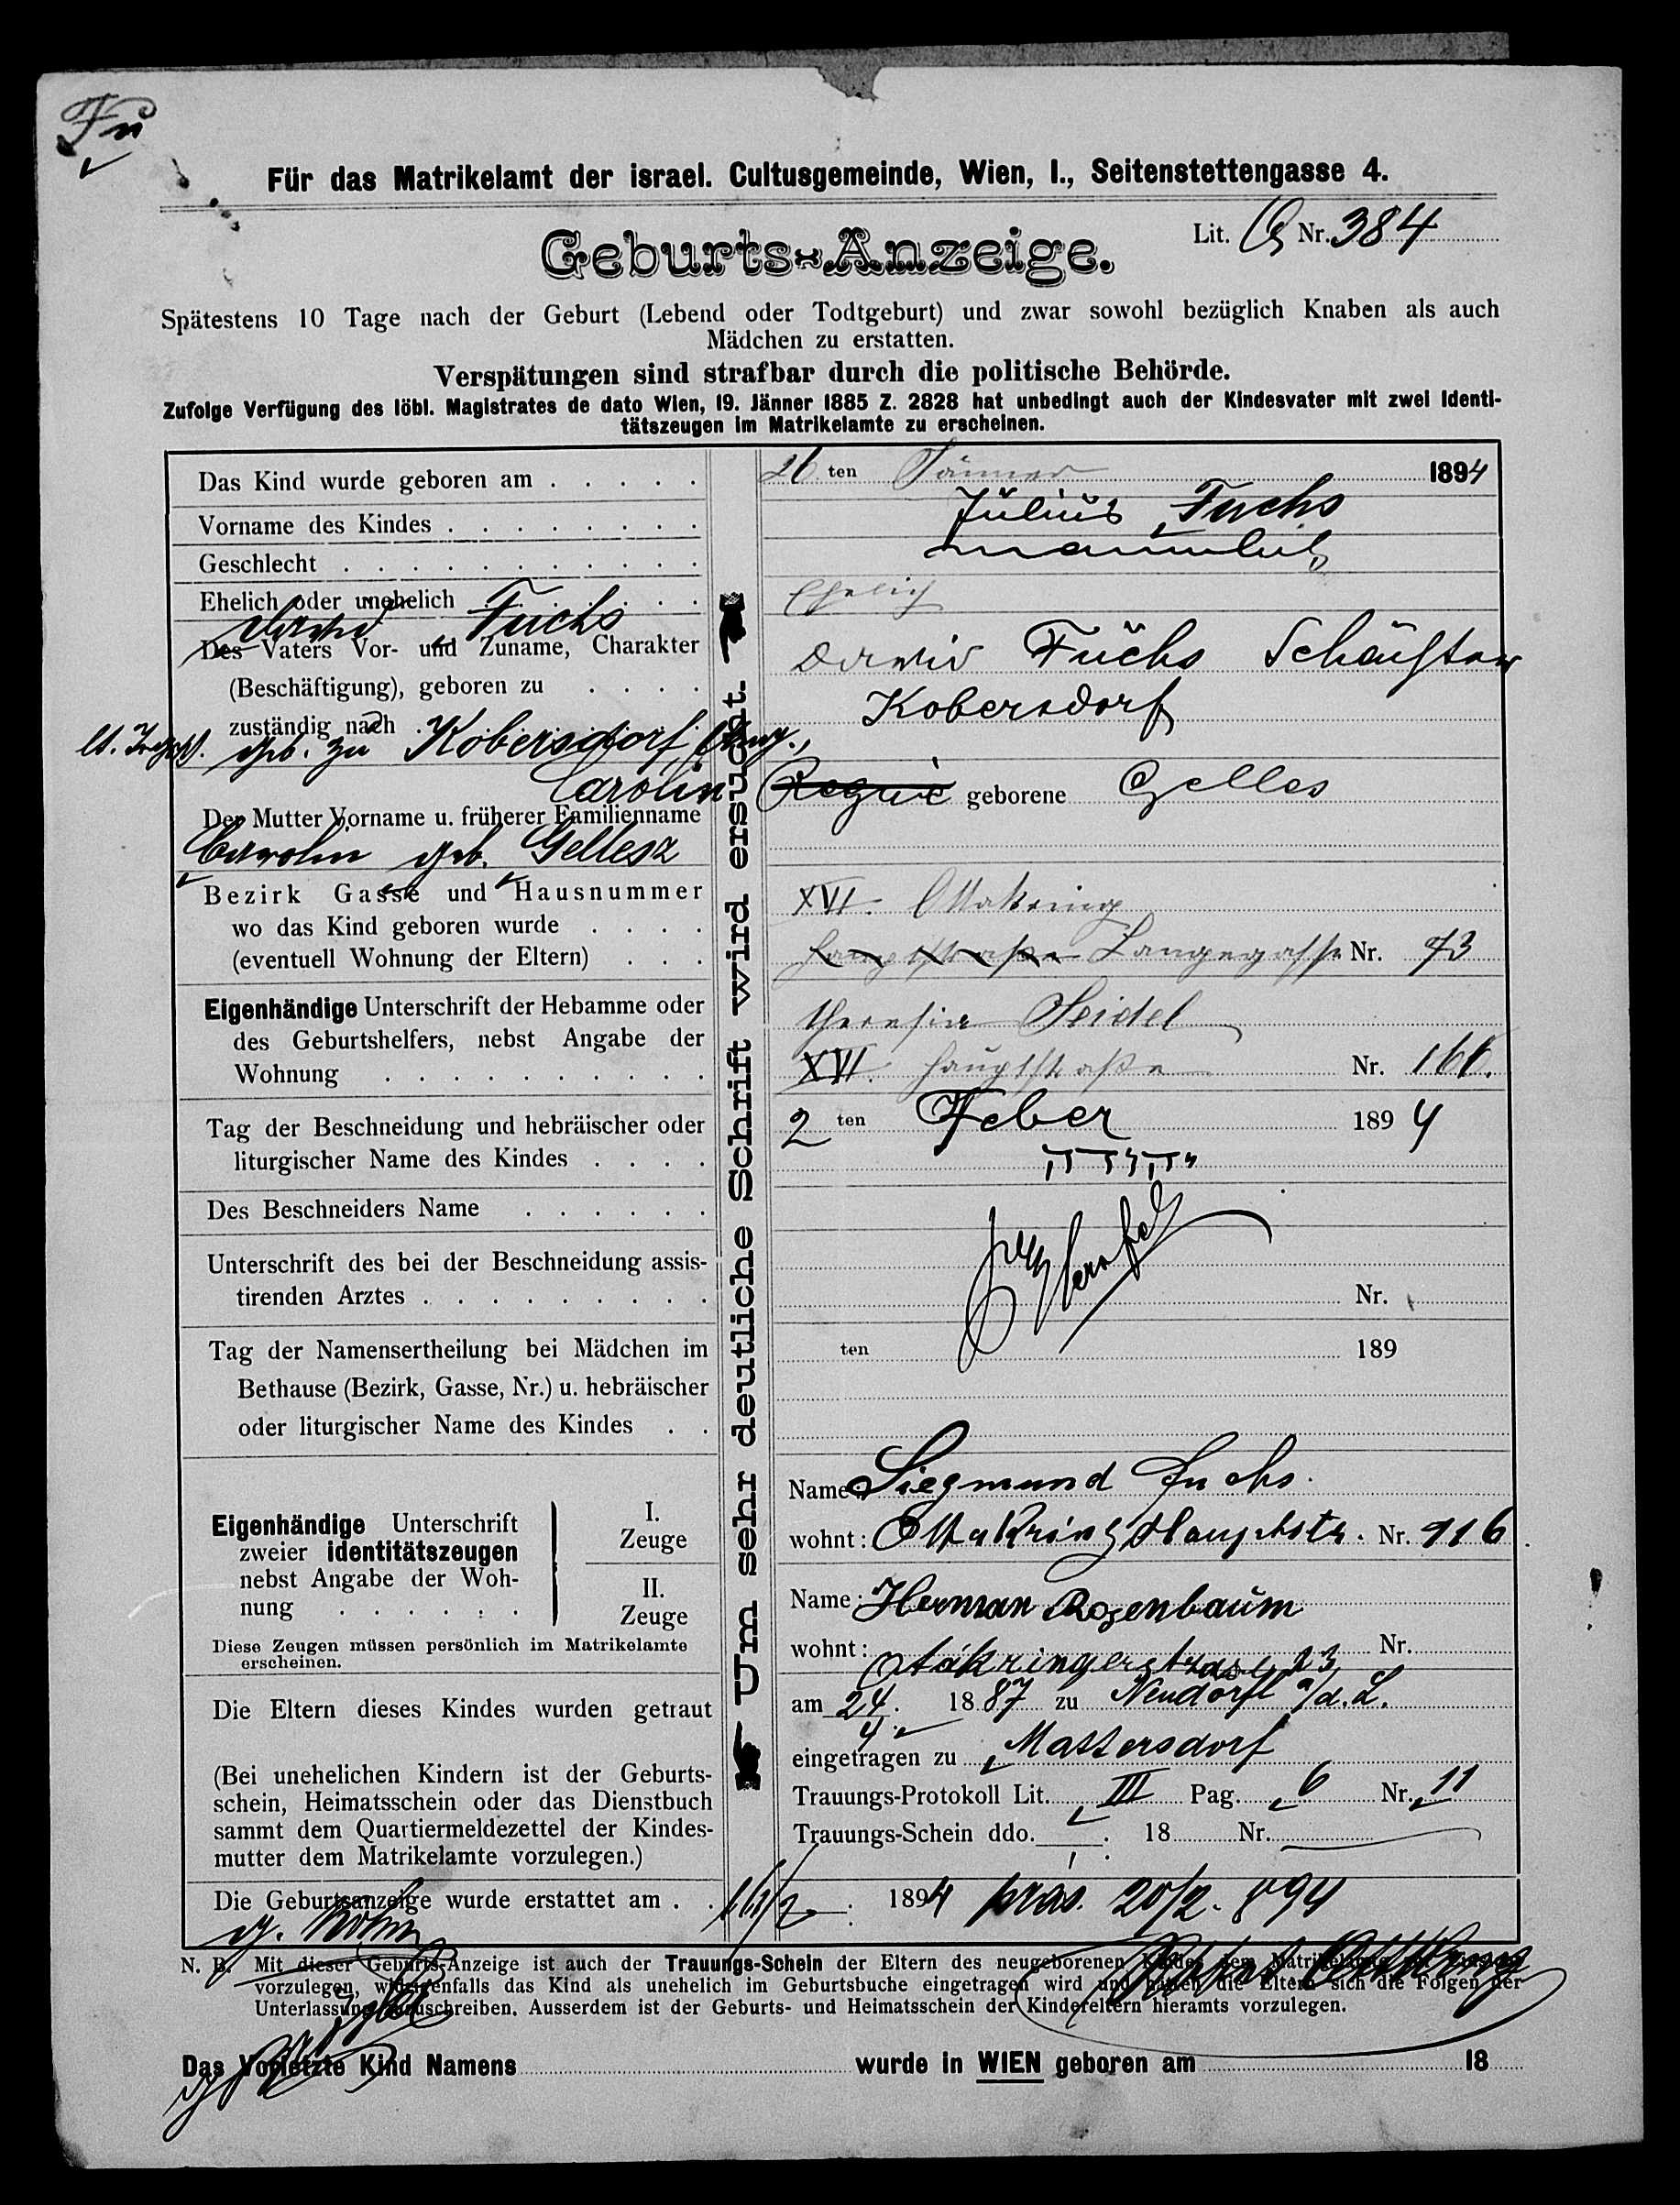 Fu
Für das Matrikelamt der israel. Cultusgemeinde, Wien, I., Seitenstettengasse 4.
Lit. Nr. 384
Geburts-Anzeige.
Spätestens 10 Tage nach der Geburt (Lebend oder Todtgeburt) und zwar sowohl bezüglich Knaben als auch
Mädchen zu erstatten.
Verspätungen sind strafbar durch die politische Behörde.
Zufolge Verfügung des löbl. Magistrates de dato Wien, 19. Jänner 1885 Z. 2828 hat unbedingt auch der Kindesvater mit zwei Identi-
tätszeugen im Matrikelamte zu erscheinen.
Das Kind wurde geboren am . . . . . 26 ten Jänner 1894
Vorname des Kindes . . . . . . . . Julius Fuchs
Geschlecht . . . . . . . . . . . männlich
Ehelich oder unehelich . . . . . . . Ehelich
David Fuchs
Des Vaters Vor- und Zuname, Charakter David Fuchs
(Beschäftigung), geboren zu . . . . Kobersdorf
zuständig nach
geb. zu Kobersdorf, Ung.,
Carolin Regine geborene Gelles
Der Mutter Vorname u. früherer Familienname
Carolin geb. Gellesz
Bezirk Gasse und Hausnummer XVI. Ottakring
wo das Kind geboren wurde . . . .
(eventuell Wohnung der Eltern) . . . Hauptstraße Langegasse Nr. 73
Eigenhändige Unterschrift der Hebamme oder Theresia Seidel
des Geburtshelfers, nebst Angabe der
Wohnung . . . . . . . . . . XVI. Hauptstraße Nr.
Tag der Beschneidung und hebräischer oder 2 ten Feber 1894
liturgischer Name des Kindes . . . . יהודה
Des Beschneiders Name . . . . . .
Unterschrift des bei der Beschneidung assis-
tirenden Arztes . . . . . . . . . Nr.
Tag der Namensertheilung bei Mädchen im ten 189
Bethause (Bezirk, Gasse, Nr.) u. hebräischer
oder liturgischer Name des Kindes . .
Um sehr deutliche Schrift wird ersucht.
Eigenhändige Unterschrift
zweier identitätszeugen
nebst Angabe der Woh-
nung . . . . . .
Diese Zeugen müssen persönlich im Matrikelamte
erscheinen.
I.
Zeuge
Name: Siegmund Fuchs.
wohnt: Ottakring Hauptstr. Nr. 116
II.
Zeuge
Name: Herman Rosenbaum
wohnt: Nr.
Otakringerstrase 23
Die Eltern dieses Kindes wurden getraut am 24. 4. 1887 zu Neudörfl a/d. L.
eingetragen zu Mattersdorf
(Bei unehelichen Kindern ist der Geburts-
schein, Heimatsschein oder das Dienstbuch
sammt dem Quartiermeldezettel der Kindes-
mutter dem Matrikelamte vorzulegen.)
Trauungs-Protokoll Lit. III Pag. 6 Nr. 11
Trauungs-Schein ddo. 18 Nr.
Die Geburtsanzeige wurde erstattet am . . 16/2 1894 präs. 20/2. 894
N. B. Mit dieser Geburts-Anzeige ist auch der Trauungs-Schein der Eltern des neugeborenen Kindes dem
vorzulegen, widrigenfalls das Kind als unehelich im Geburtsbuche eingetragen wird und hätten die Eltern sich die Folgen der
Unterlassung zuzuschreiben. Ausserdem ist der Geburts- und Heimatsschein der Kindeseltern hieramts vorzulegen.
Das Vorletzte Kind Namens wurde in WIEN geboren am 18